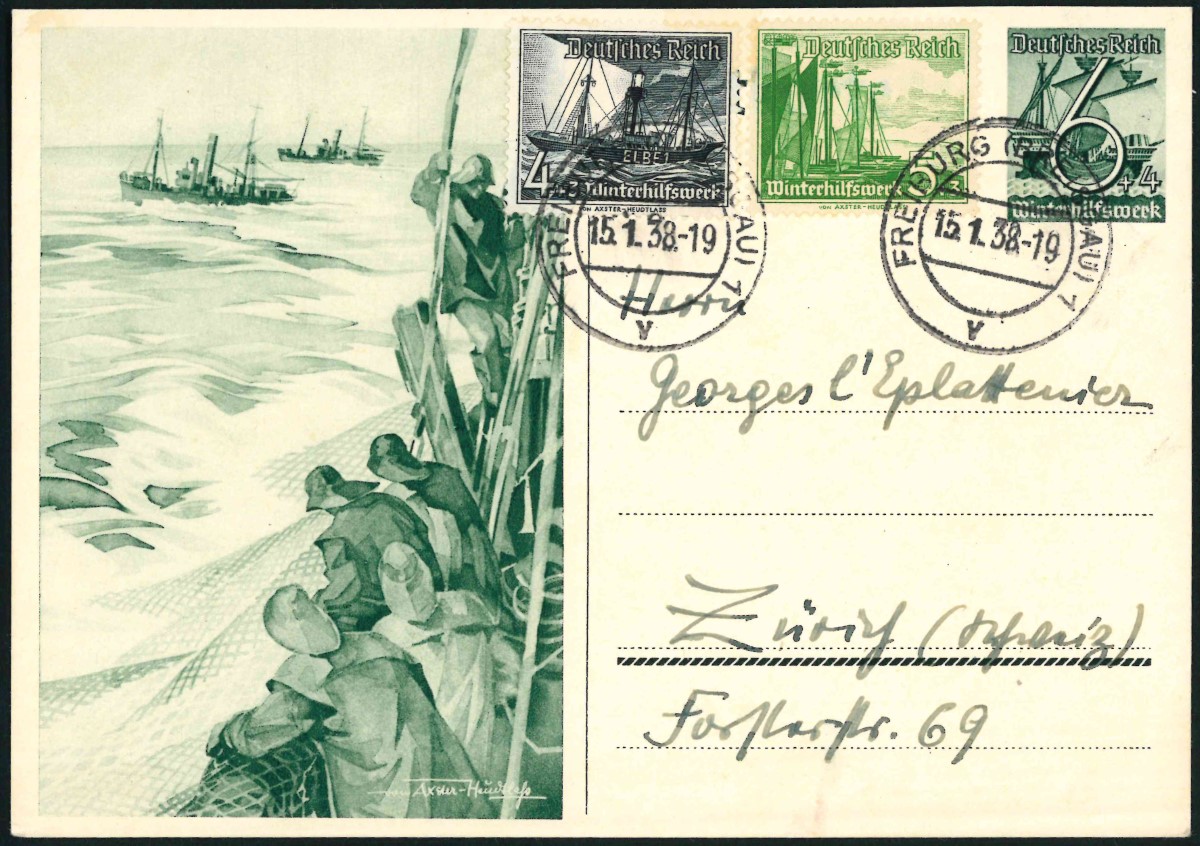 Deutsches Reich
ELBE 1
4 Winterhilfswerk
VON AXSTER-HEUDTLASS
Deutsches Reich
Winterhilfswerk
VON AXSTER-HEUDTLASS
Deutsches Reich
6
+4
Winterhilfswerk
FREIBURG 1
15.1.38.-19
v
FREIBURG (BREISGAU) 1
15.1.38.-19
v
Herrn
Georges l'Eplattenier
Zürich (Schweiz)
Forsterstr. 69
von Axster-Heudtlass